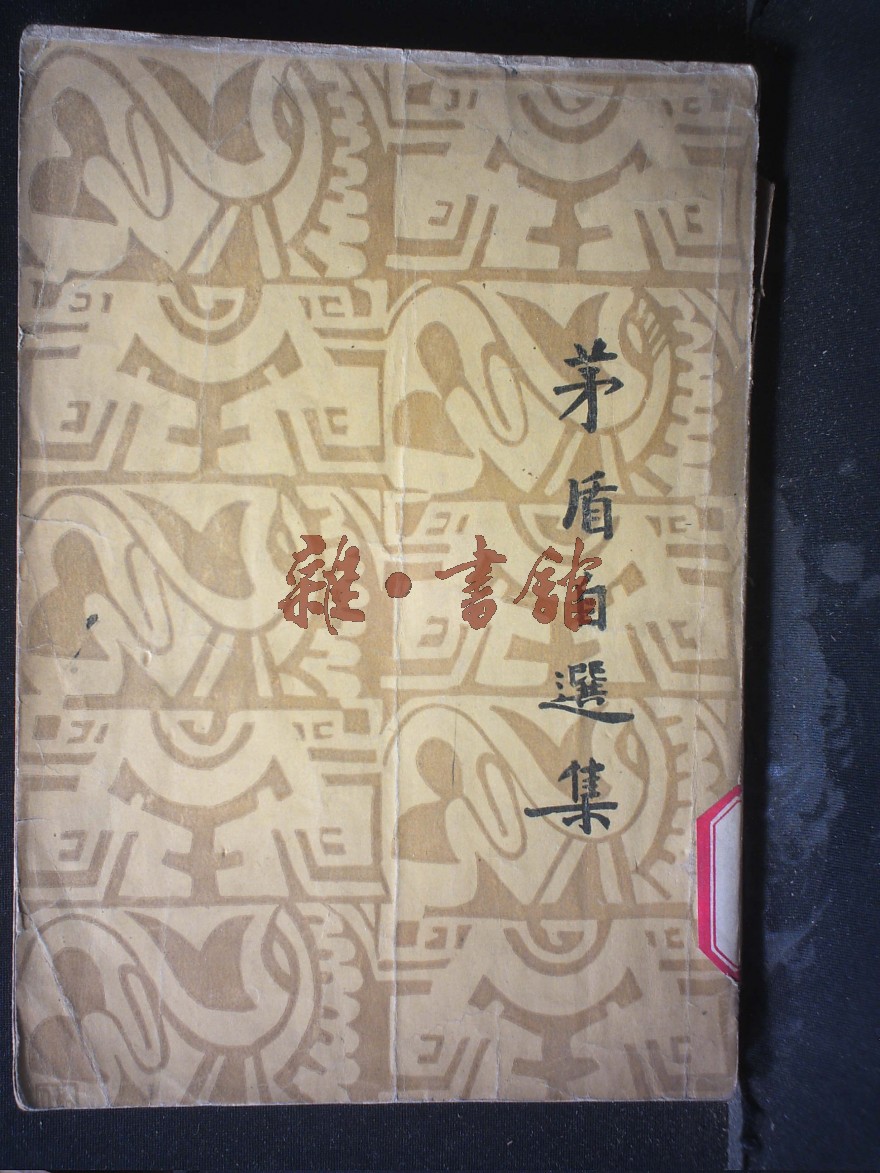 茅盾自選集
雜•書館